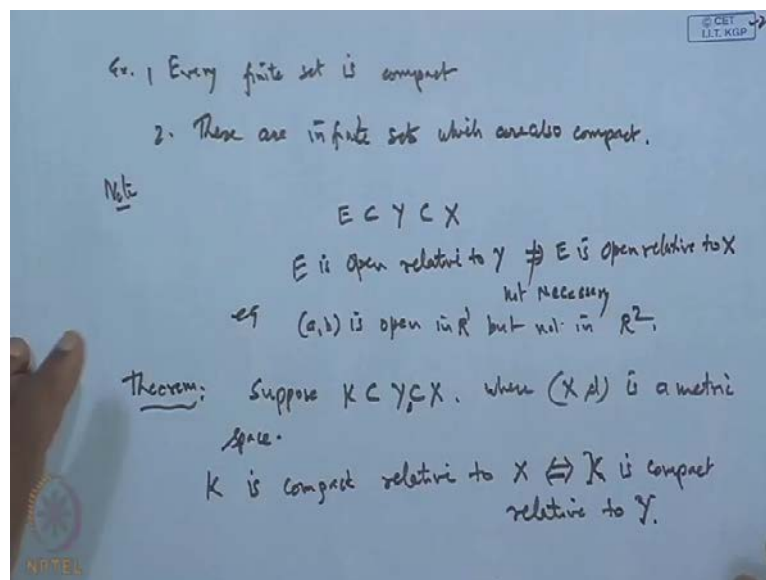 © CET
I.I.T. KGP
Ex. 1 Every finite set is compact
2. There are infinite sets which are also compact.
Note
E ⊂ Y ⊂ X
E is open relative to Y ⇏ E is open relative to X
not necessary
eg (a,b) is open in R¹ but not in R².
Theorem: Suppose K ⊂ Y ⊂ X. where (X,d) is a metric
space.
K is compact relative to X ⇔ K is compact
relative to Y.
NPTEL